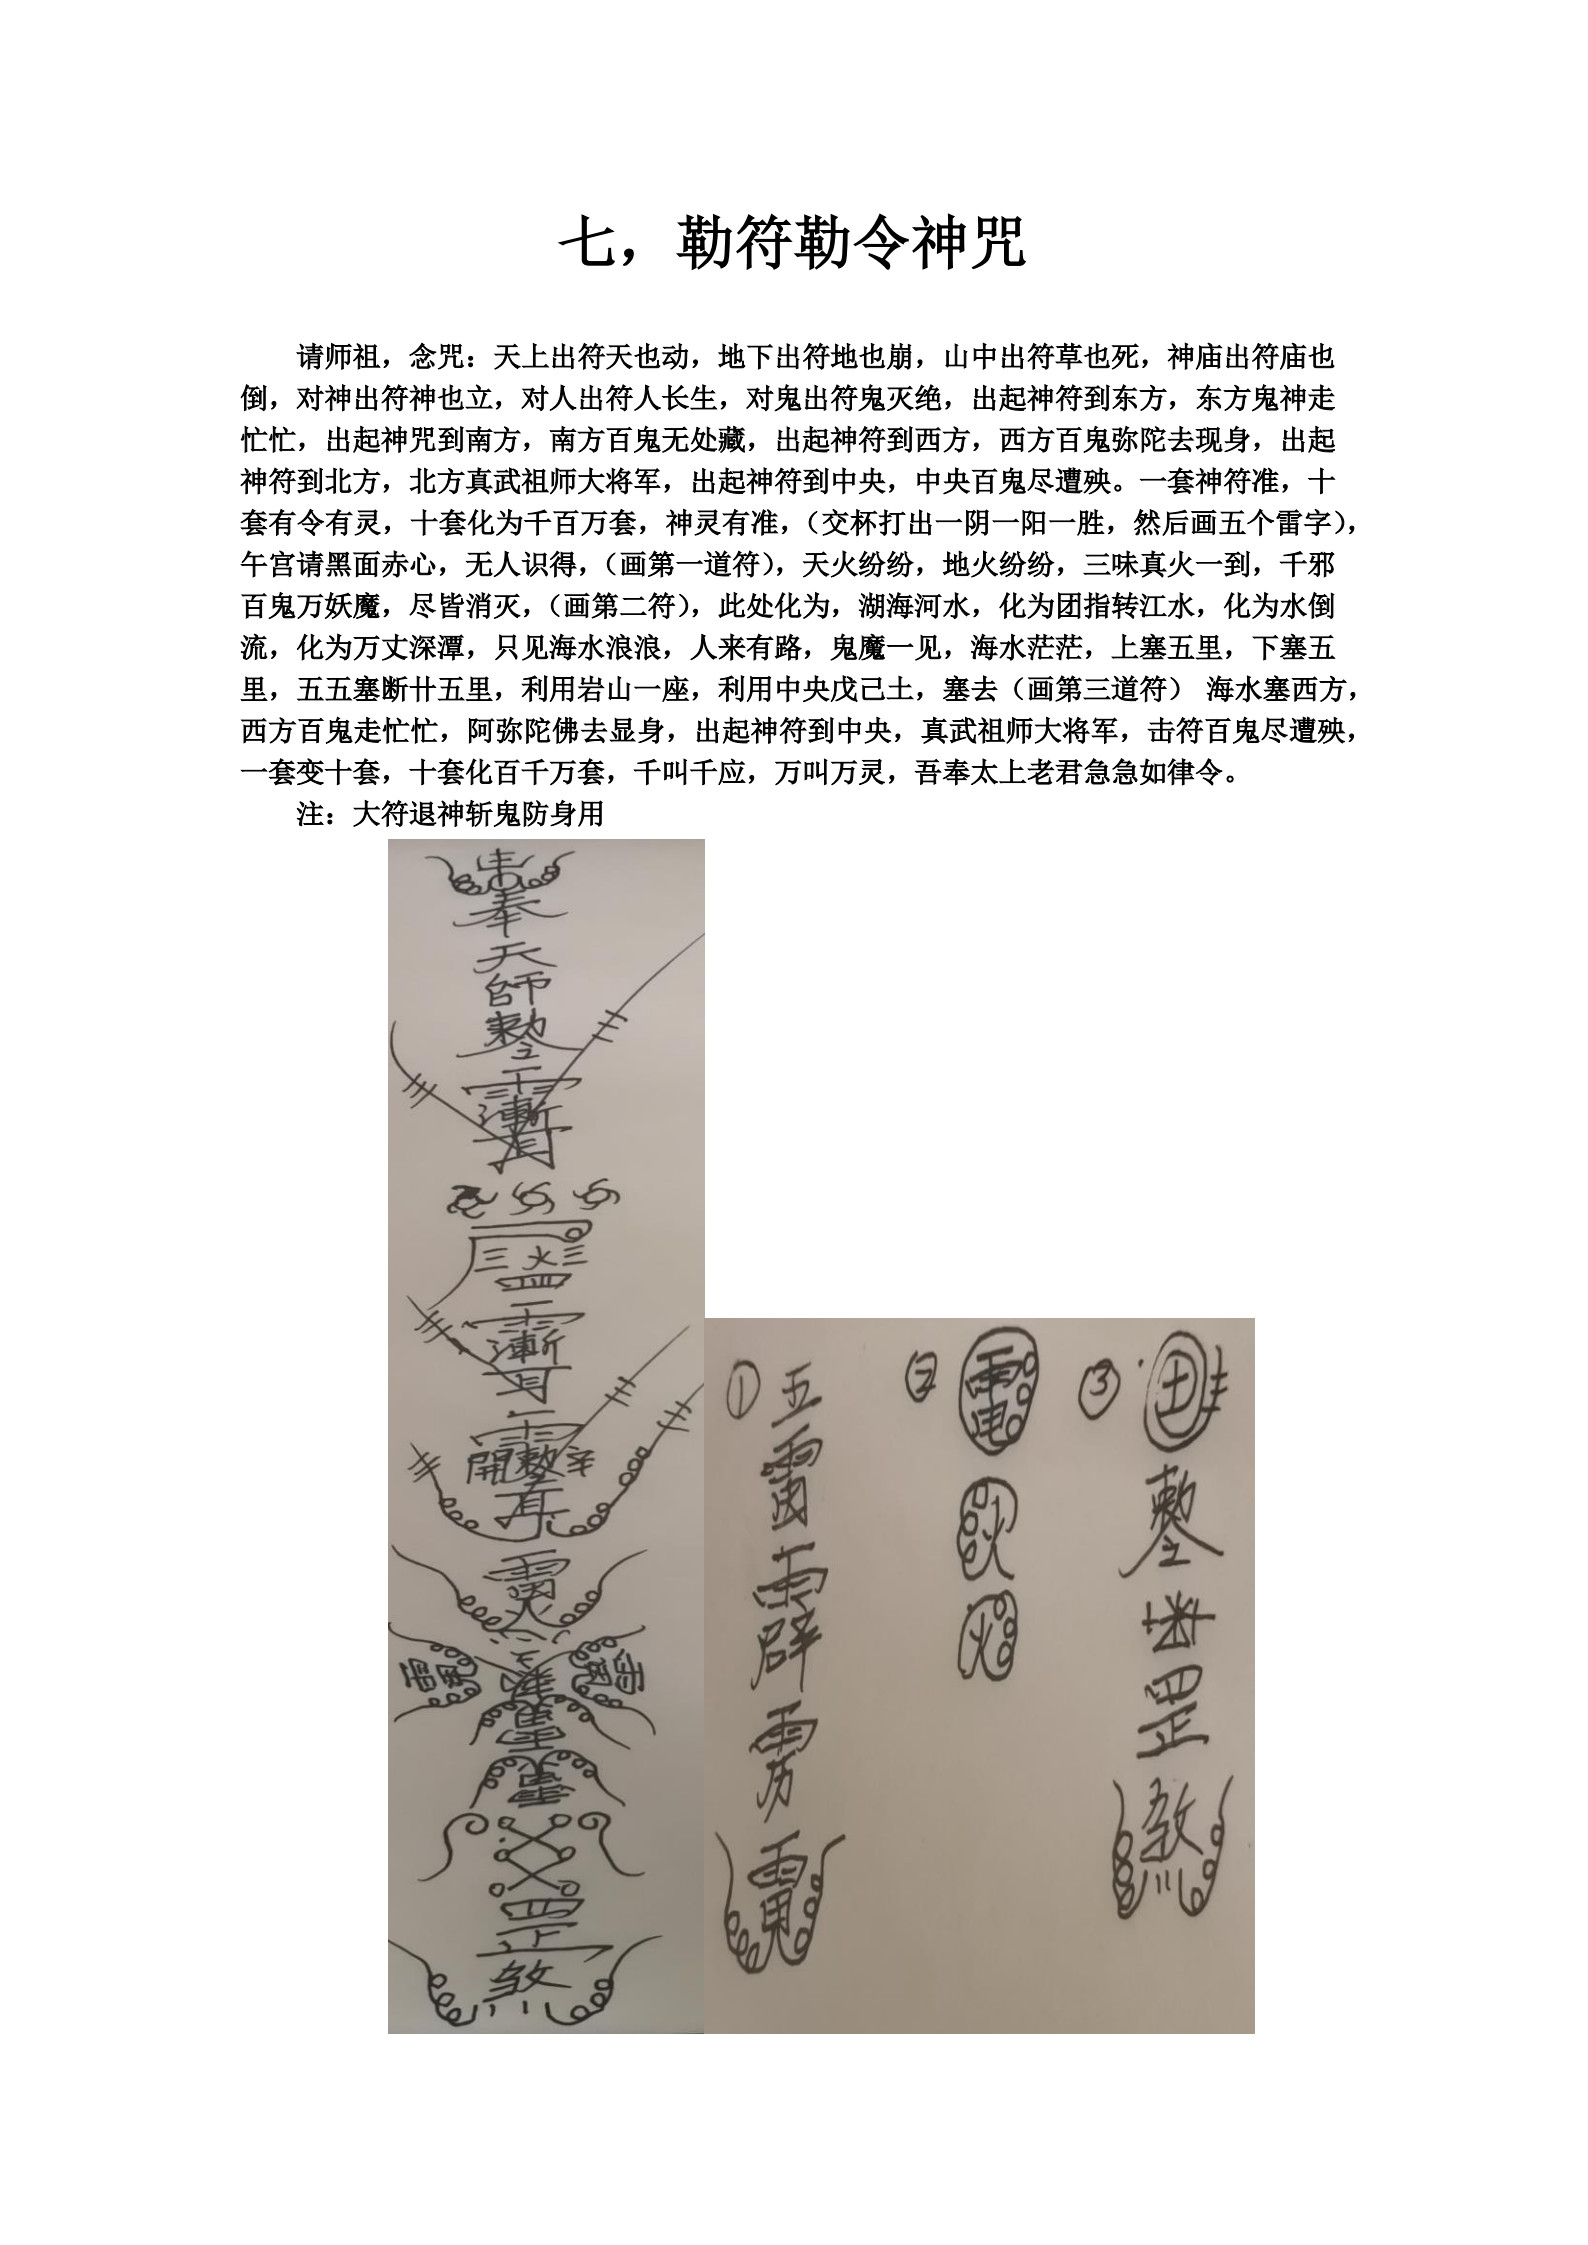 七，勒符勒令神咒
请师祖，念咒：天上出符天也动，地下出符地也崩，山中出符草也死，神庙出符庙也
倒，对神出符神也立，对人出符人长生，对鬼出符鬼灭绝，出起神符到东方，东方鬼神走
忙忙，出起神咒到南方，南方百鬼无处藏，出起神符到西方，西方百鬼弥陀去现身，出起
神符到北方，北方真武祖师大将军，出起神符到中央，中央百鬼尽遭殃。一套神符准，十
套有令有灵，十套化为千百万套，神灵有准，（交杯打出一阴一阳一胜，然后画五个雷字），
午宫请黑面赤心，无人识得，（画第一道符），天火纷纷，地火纷纷，三味真火一到，千邪
百鬼万妖魔，尽皆消灭，（画第二符），此处化为，湖海河水，化为团指转江水，化为水倒
流，化为万丈深潭，只见海水浪浪，人来有路，鬼魔一见，海水茫茫，上塞五里，下塞五
里，五五塞断廿五里，利用岩山一座，利用中央戊己土，塞去（画第三道符） 海水塞西方，
西方百鬼走忙忙，阿弥陀佛去显身，出起神符到中央，真武祖师大将军，击符百鬼尽遭殃，
一套变十套，十套化百千万套，千叫千应，万叫万灵，吾奉太上老君急急如律令。
注：大符退神斩鬼防身用
奉
天
師
三火三
罡
煞
①
五
②
火
③
土
罡
煞